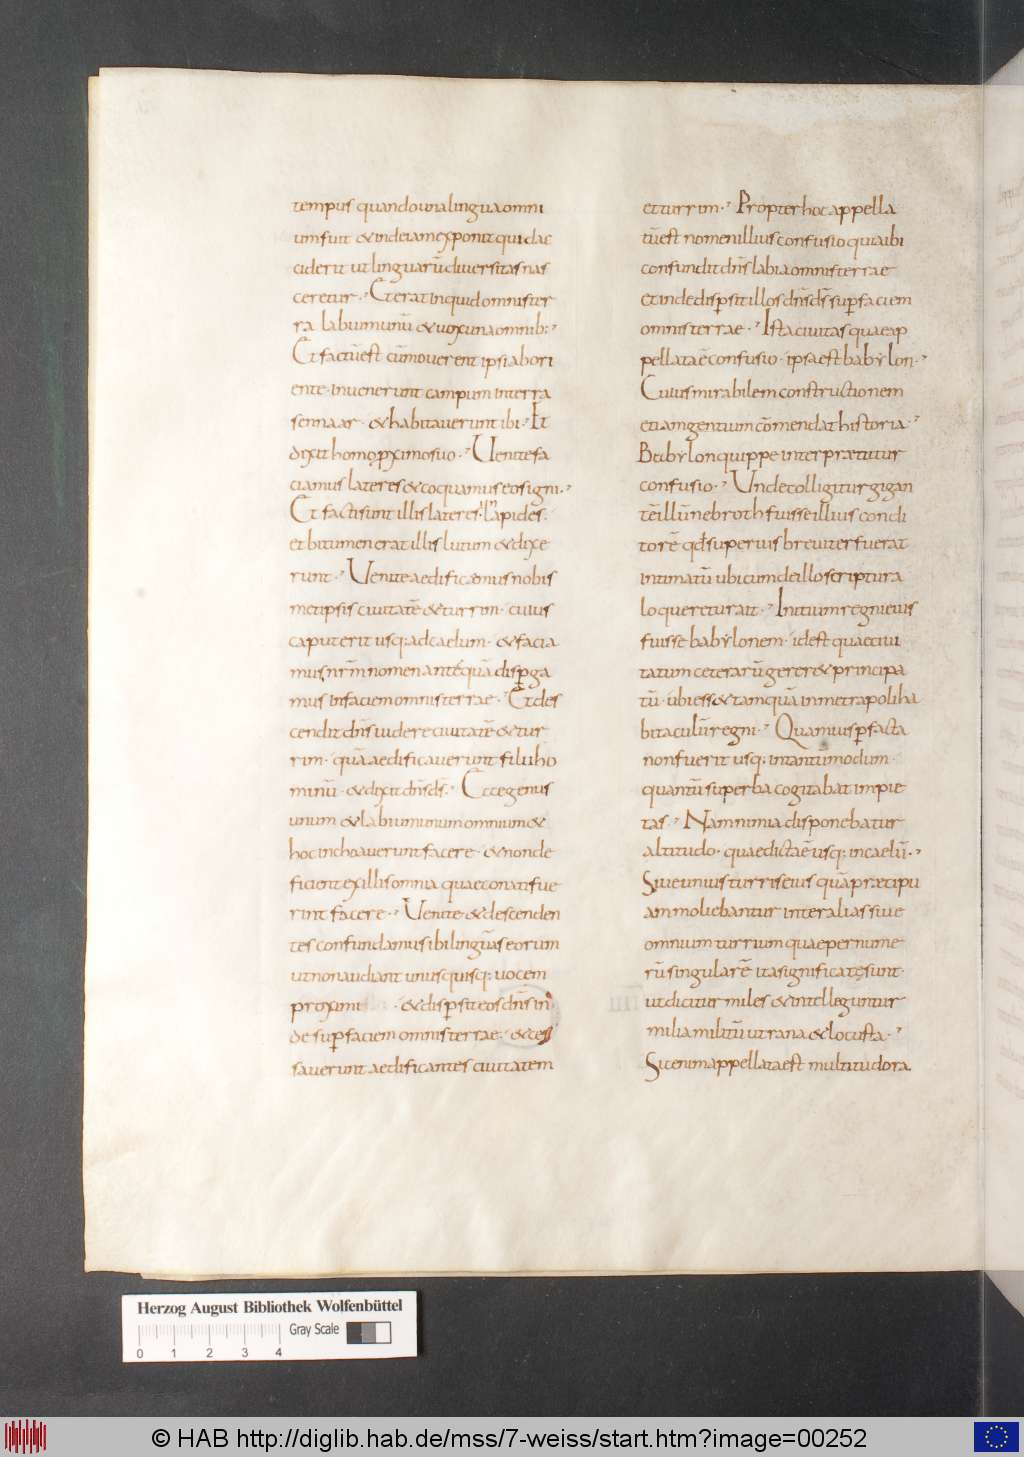 tempus quando una lingua omni
um fuit & inde iam exponit qui dac
ciderit ut linguarū diuersitas nas
ceretur. Et erat inquid omnis ter
ra labium unū & uox una omnib:
Et factū est cū mouerent ipsi ab ori
ente. inuenerunt campum in terra
sennaar. & habitauerunt ibi. Et
dixit homo ꝓximo suo. Uenite fa
ciamus lateres & coquamus eos igni.
Et facti sunt illis lateres. in lapides.
et bitumen erat illis lutum & dixe
runt. Uenite aedificemus nobis
metipsis ciuitatē & turrim. cuius
caput erit usq: ad caelum. & facia
mus nr̄m nomen antequā disꝑga
mus in faciem omnis terrae. Et des
cendit dn̄s uidere ciuitatē & tur
rim. quā aedificauerunt filii ho
minū. & dixit dn̄s d̄s. Ecce genus
unum & labium unum omnium &
hoc inchoauerunt facere. & non de
ficient ex illis omnia quae conati fue
rint facere. Uenite & descenden
tes confundamus ibi linguas eorum
ut non audiant unusquisq: uocem
proximi & disꝑsit eos dn̄s in
de suꝑ faciem omnis terrae. & ces
sauerunt aedificantes ciuitatem
et turrim. Propter hoc appella
tū est nomen illius confusio quia ibi
confundit dn̄s labia omnis terrae
et inde disꝑsit illos dn̄s d̄s suꝑ faciem
omnis terrae. Ista ciuitas quae ap
pellata ē confusio. ipsa est babylon.
Cuius mirabilem constructionem
etiam gentium cōmendat historia.
Babylon quippe interpraetatur
confusio. Unde colligitur gigan
tē illū nebroth fuisse illius condi
torē qd superius breuiter fuerat
intimatū ubi cum de illo scriptura
loqueretur ait. Initium regni eius
fuisse babylonem. id est quae ciui
tatum ceterarū gerer& principa
tū. ubi ess& tamquā in metrapoli ha
bitaculū regni. Quamuis ꝑfacta
non fuerit usq: in tantū modum.
quantū superba cogitabat impie
tas. Nam nimia disponebatur
altitudo. quae dicta ē usq: in caelū.
Siue unius turris eius quā praecipu
am moliebantur inter alias siue
omnium turrium quae per nume
rū singularē ita significatę sunt.
ut dicitur miles & intelleguntur
milia militū ut rana & locusta.
Sic enim appellata est multitudo ra
Herzog August Bibliothek Wolfenbüttel
Gray Scale
0 1 2 3 4
© HAB http://diglib.hab.de/mss/7-weiss/start.htm?image=00252